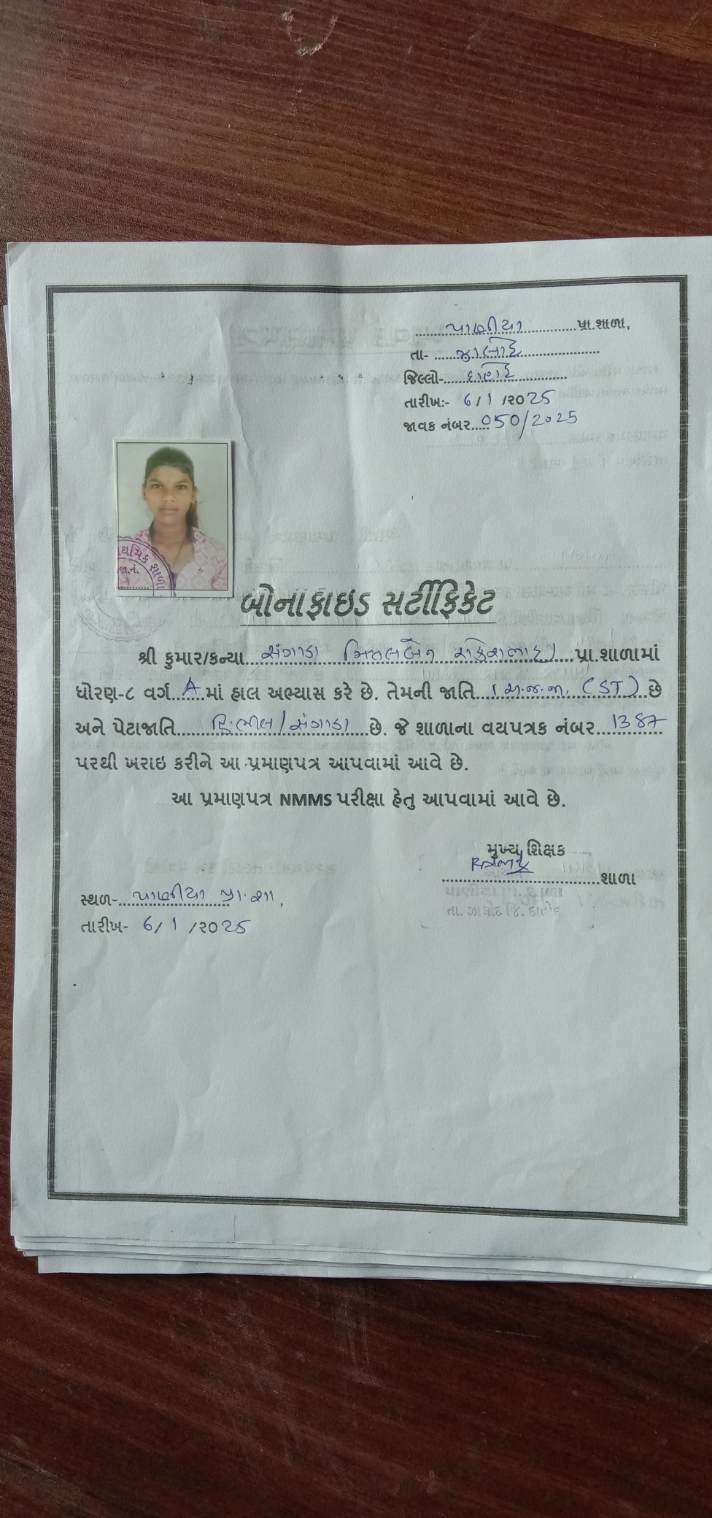 પાણીયા પ્રા.શાળા,
તા- ઝાલોદ
જિલ્લો- દાહોદ
તારીખ:- 6/1/2025
જાવક નંબર 050/2025
બોનાફાઇડ સર્ટીફિકેટ
શ્રી કુમાર/કન્યા સંગાડા પ્રા.શાળામાં
ધોરણ-૮ વર્ગ A માં હાલ અભ્યાસ કરે છે. તેમની જાતિ (અ.જ.જા. (ST) છે
અને પેટાજાતિ હિ.ભીલ/સંગાડા છે. જે શાળાના વયપત્રક નંબર 1387
પરથી ખરાઇ કરીને આ પ્રમાણપત્ર આપવામાં આવે છે.
આ પ્રમાણપત્ર NMMS પરીક્ષા હેતુ આપવામાં આવે છે.
મુખ્ય શિક્ષક
શાળા
સ્થળ- પાણીયા પ્રા.શા,
તારીખ- 6/1/2025